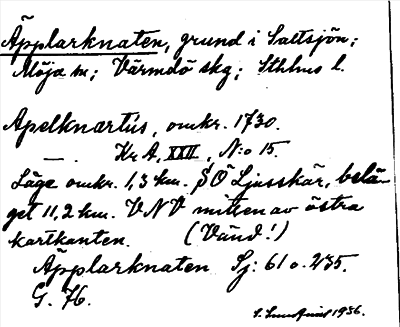 Äpplarknaten, grund i Saltsjön;
Möja sn; Värmdö skg; Sthlms l.
Apelknartus, omkr. 1730.
— . Kr A, XXII, N:o 15.
Läge omkr. 1,3 km. SÖ Ljusskär, belä-
get 11,2 km. VNV mitten av östra
kartkanten. (Vänd!)
Äpplarknaten Sj: 61 o. 235.
G. 76.
1936.